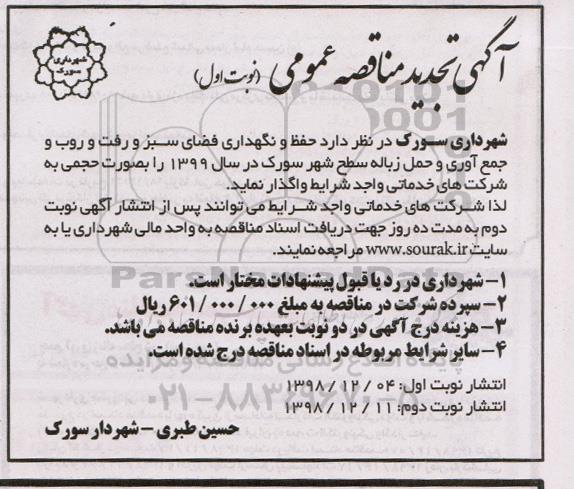 شهرداری
سورک
آگهی تجدید مناقصه عمومی (نوبت اول)
شهرداری سورک در نظر دارد حفظ و نگهداری فضای سبز و رفت و روب و
جمع آوری و حمل زباله سطح شهر سورک در سال ۱۳۹۹ را بصورت حجمی به
شرکت های خدماتی واجد شرایط واگذار نماید.
لذا شرکت های خدماتی واجد شرایط می توانند پس از انتشار آگهی نوبت
دوم به مدت ده روز جهت دریافت اسناد مناقصه به واحد مالی شهرداری یا به
سایت www.sourak.ir مراجعه نمایند.
ParsNamadData
۱- شهرداری در رد یا قبول پیشنهادات مختار است.
۲- سپرده شرکت در مناقصه به مبلغ ۶۰۱/۰۰۰/۰۰۰ ریال
۳- هزینه درج آگهی در دو نوبت بعهده برنده مناقصه می باشد.
۴- سایر شرایط مربوطه در اسناد مناقصه درج شده است.
پایگاه اطلاع رسانی مناقصه و مزایده
۰۲۱-۸۸۳۴۹۶۷۰-۵
انتشار نوبت اول: ۰۴ / ۱۲ / ۱۳۹۸
انتشار نوبت دوم: ۱۱ / ۱۲ / ۱۳۹۸
حسین طبری - شهردار سورک